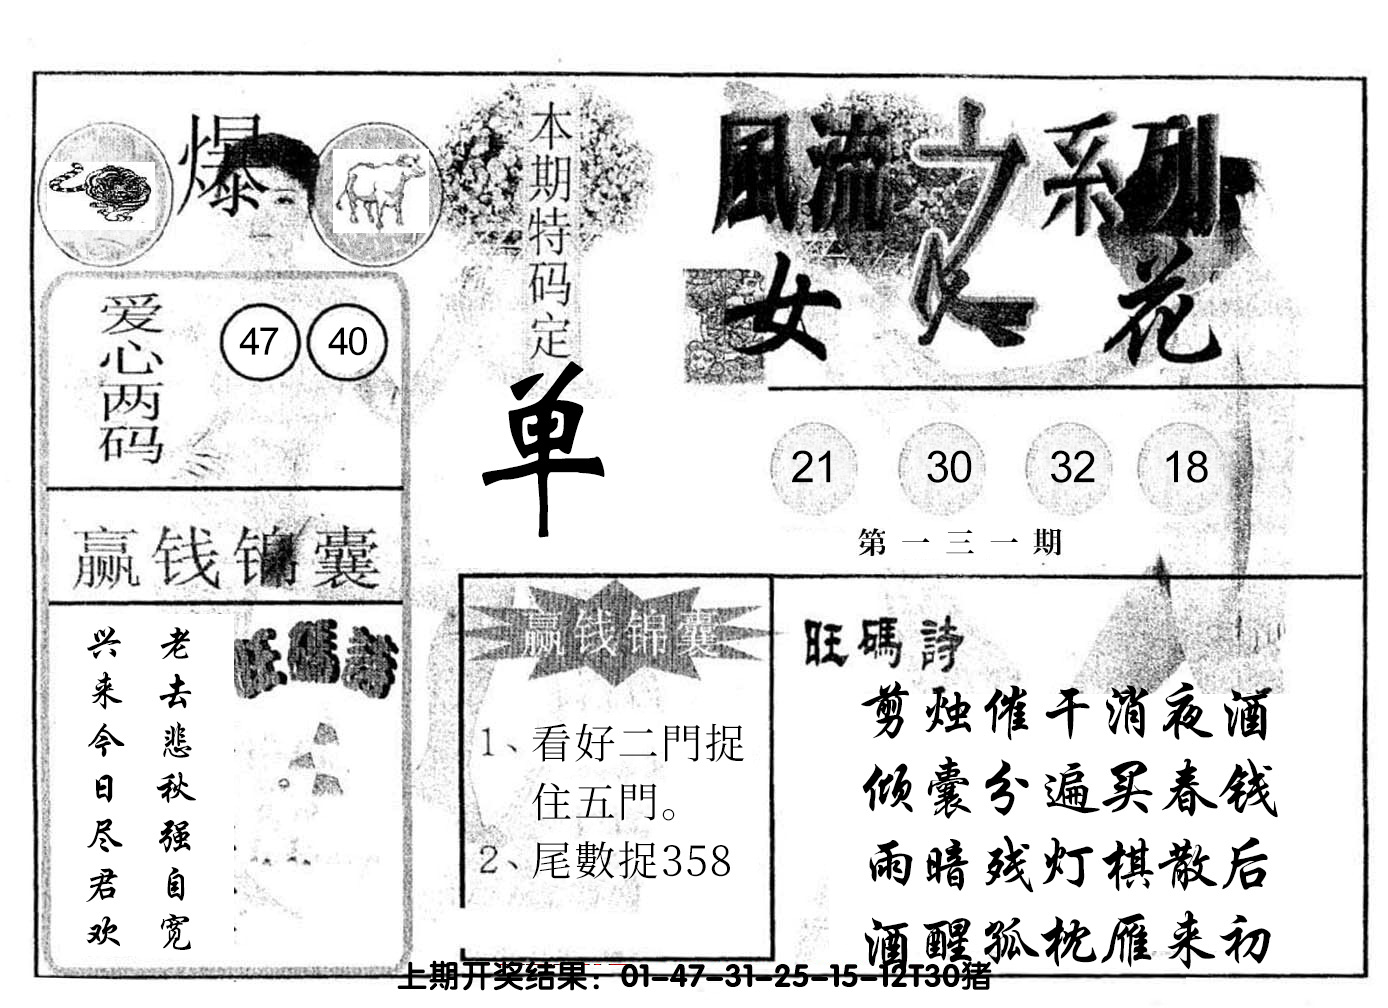 爆
本期特码定
单
風流之系列
女人花
爱心两码
47 40
21 30 32 18
第一三一期
赢钱锦囊
老去悲秋强自宽
兴来今日尽君欢
旺碼詩
赢钱锦囊
1、看好二門捉
住五門。
2、尾數捉358
旺碼詩
剪烛催干消夜酒
倾囊分遍买春钱
雨暗残灯棋散后
酒醒孤枕雁来初
上期开奖结果：01-47-31-25-15-12T30猪